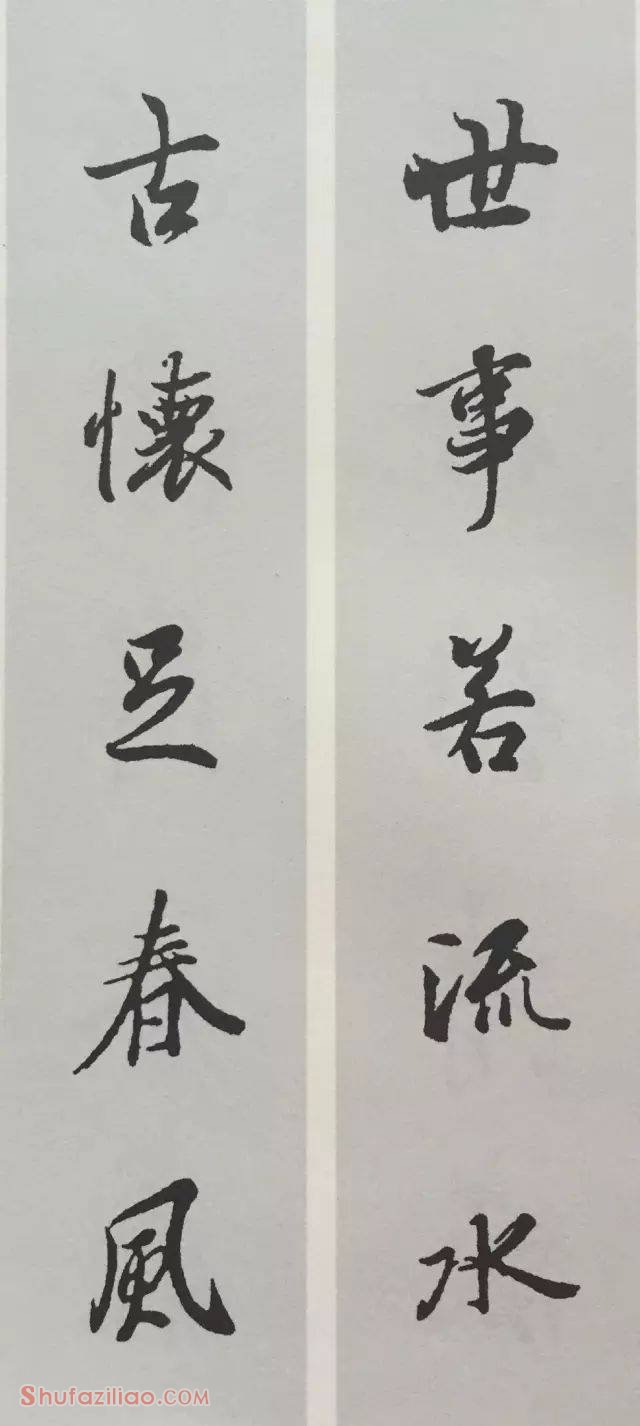 世事若流水
古懷足春風
Shufaziliao.COM